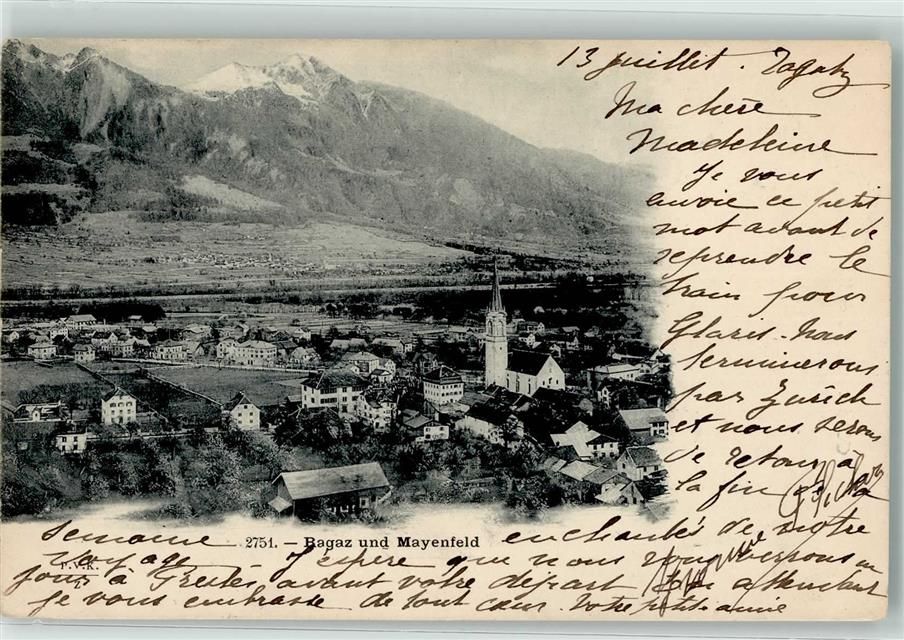 13 juillet. Ragatz
Ma chère
Madeleine
Je vous
envoie ce petit
mot avant de
reprendre le
train pour
Glaris. Nous
terminerons
par Zurich
et nous serons
de retour à
la fin de la
semaine enchantés de notre
2751. - Ragaz und Mayenfeld
voyage. J'espère que nous vous verrons un
P.V.K.
Z.
jour à avant votre départ
Je vous embrasse de tout cœur. Votre petite amie